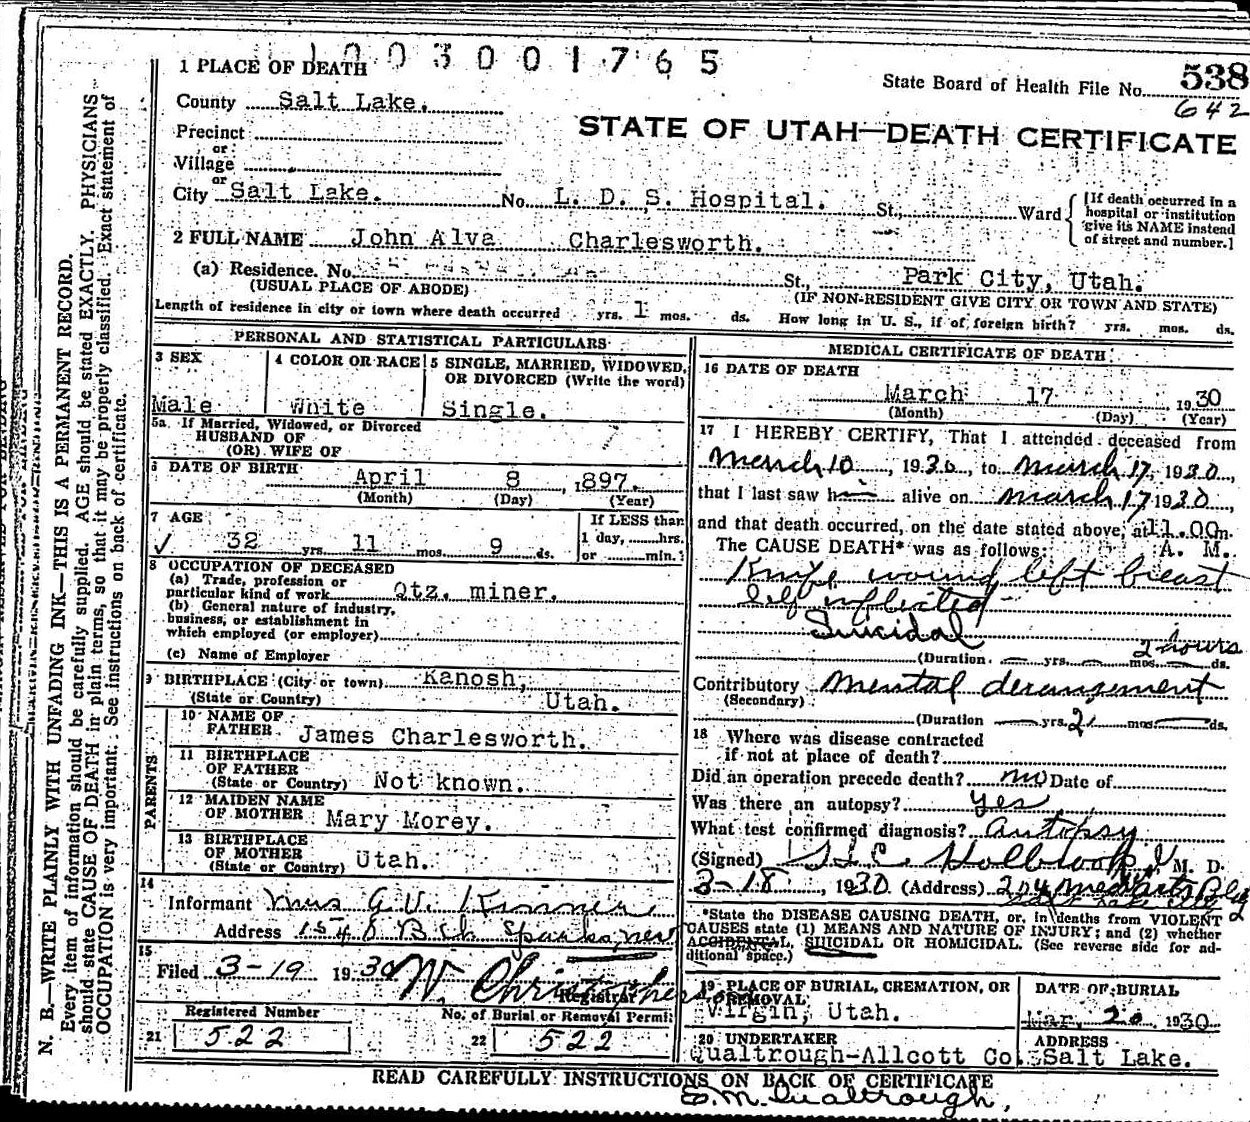 1003001765
1 PLACE OF DEATH
State Board of Health File No. 538
642
County Salt Lake.
STATE OF UTAH—DEATH CERTIFICATE
Precinct
or
Village
or
City Salt Lake. No. L. D. S. Hospital. St., Ward
[If death occurred in a
hospital or institution
give its NAME instead
of street and number.]
2 FULL NAME John Alva Charlesworth.
(a) Residence. No. St., Park City, Utah.
(USUAL PLACE OF ABODE) (IF NON-RESIDENT GIVE CITY OR TOWN AND STATE)
Length of residence in city or town where death occurred yrs. 1 mos. ds. How long in U. S., if of foreign birth? yrs. mos. ds.
PERSONAL AND STATISTICAL PARTICULARS
3 SEX
Male
4 COLOR OR RACE
White
5 SINGLE, MARRIED, WIDOWED,
OR DIVORCED (Write the word)
Single.
5a If Married, Widowed, or Divorced
HUSBAND OF
(OR) WIFE OF
6 DATE OF BIRTH April 8, 1897.
(Month) (Day) (Year)
7 AGE
✓ 32 yrs. 11 mos. 9 ds.
If LESS than
1 day, hrs.
or min.
8 OCCUPATION OF DECEASED
(a) Trade, profession or
particular kind of work Qtz. miner.
(b) General nature of industry,
business, or establishment in
which employed (or employer)
(c) Name of Employer
9 BIRTHPLACE (City or town) Kanosh,
(State or Country) Utah.
PARENTS
10 NAME OF
FATHER James Charlesworth.
11 BIRTHPLACE
OF FATHER
(State or Country) Not known.
12 MAIDEN NAME
OF MOTHER Mary Morey.
13 BIRTHPLACE
OF MOTHER
(State or Country) Utah.
14
Informant Mrs G. V.
Address 1548 B St. Sparks, Nev
15
Filed 3-19 1930 W. Christopherson
Registrar
Registered Number
21 522
No. of Burial or Removal Permit
22 522
MEDICAL CERTIFICATE OF DEATH
16 DATE OF DEATH
March 17, 1930
(Month) (Day) (Year)
17 I HEREBY CERTIFY, That I attended deceased from
March 10, 1930, to March 17, 1930,
that I last saw him alive on March 17 1930,
and that death occurred, on the date stated above, at 11.00 m.
The CAUSE DEATH* was as follows: A. M.
Knife wound left breast
self inflicted
Suicidal
2 hours
(Duration yrs. mos. ds.
Contributory Mental derangement
(Secondary)
(Duration yrs. 2 mos. ds.
18 Where was disease contracted
if not at place of death?
Did an operation precede death? no Date of
Was there an autopsy? yes
What test confirmed diagnosis? Autopsy
(Signed) Holbrook M. D.
3-18, 1930 (Address) 204 Med Arts Bldg
*State the DISEASE CAUSING DEATH, or, in deaths from VIOLENT
CAUSES state (1) MEANS AND NATURE OF INJURY; and (2) whether
ACCIDENTAL, SUICIDAL OR HOMICIDAL. (See reverse side for ad-
ditional space.)
19 PLACE OF BURIAL, CREMATION, OR
REMOVAL
Virgin, Utah.
DATE OF BURIAL
Mar. 20, 1930
20 UNDERTAKER
Qualtrough-Allcott Co.
ADDRESS
Salt Lake.
READ CAREFULLY INSTRUCTIONS ON BACK OF CERTIFICATE
E. M. Qualtrough,
N. B.—WRITE PLAINLY WITH UNFADING INK—THIS IS A PERMANENT RECORD.
Every item of information should be carefully supplied. AGE should be stated EXACTLY. PHYSICIANS
should state CAUSE OF DEATH in plain terms, so that it may be properly classified. Exact statement of
OCCUPATION is very important. See instructions on back of certificate.